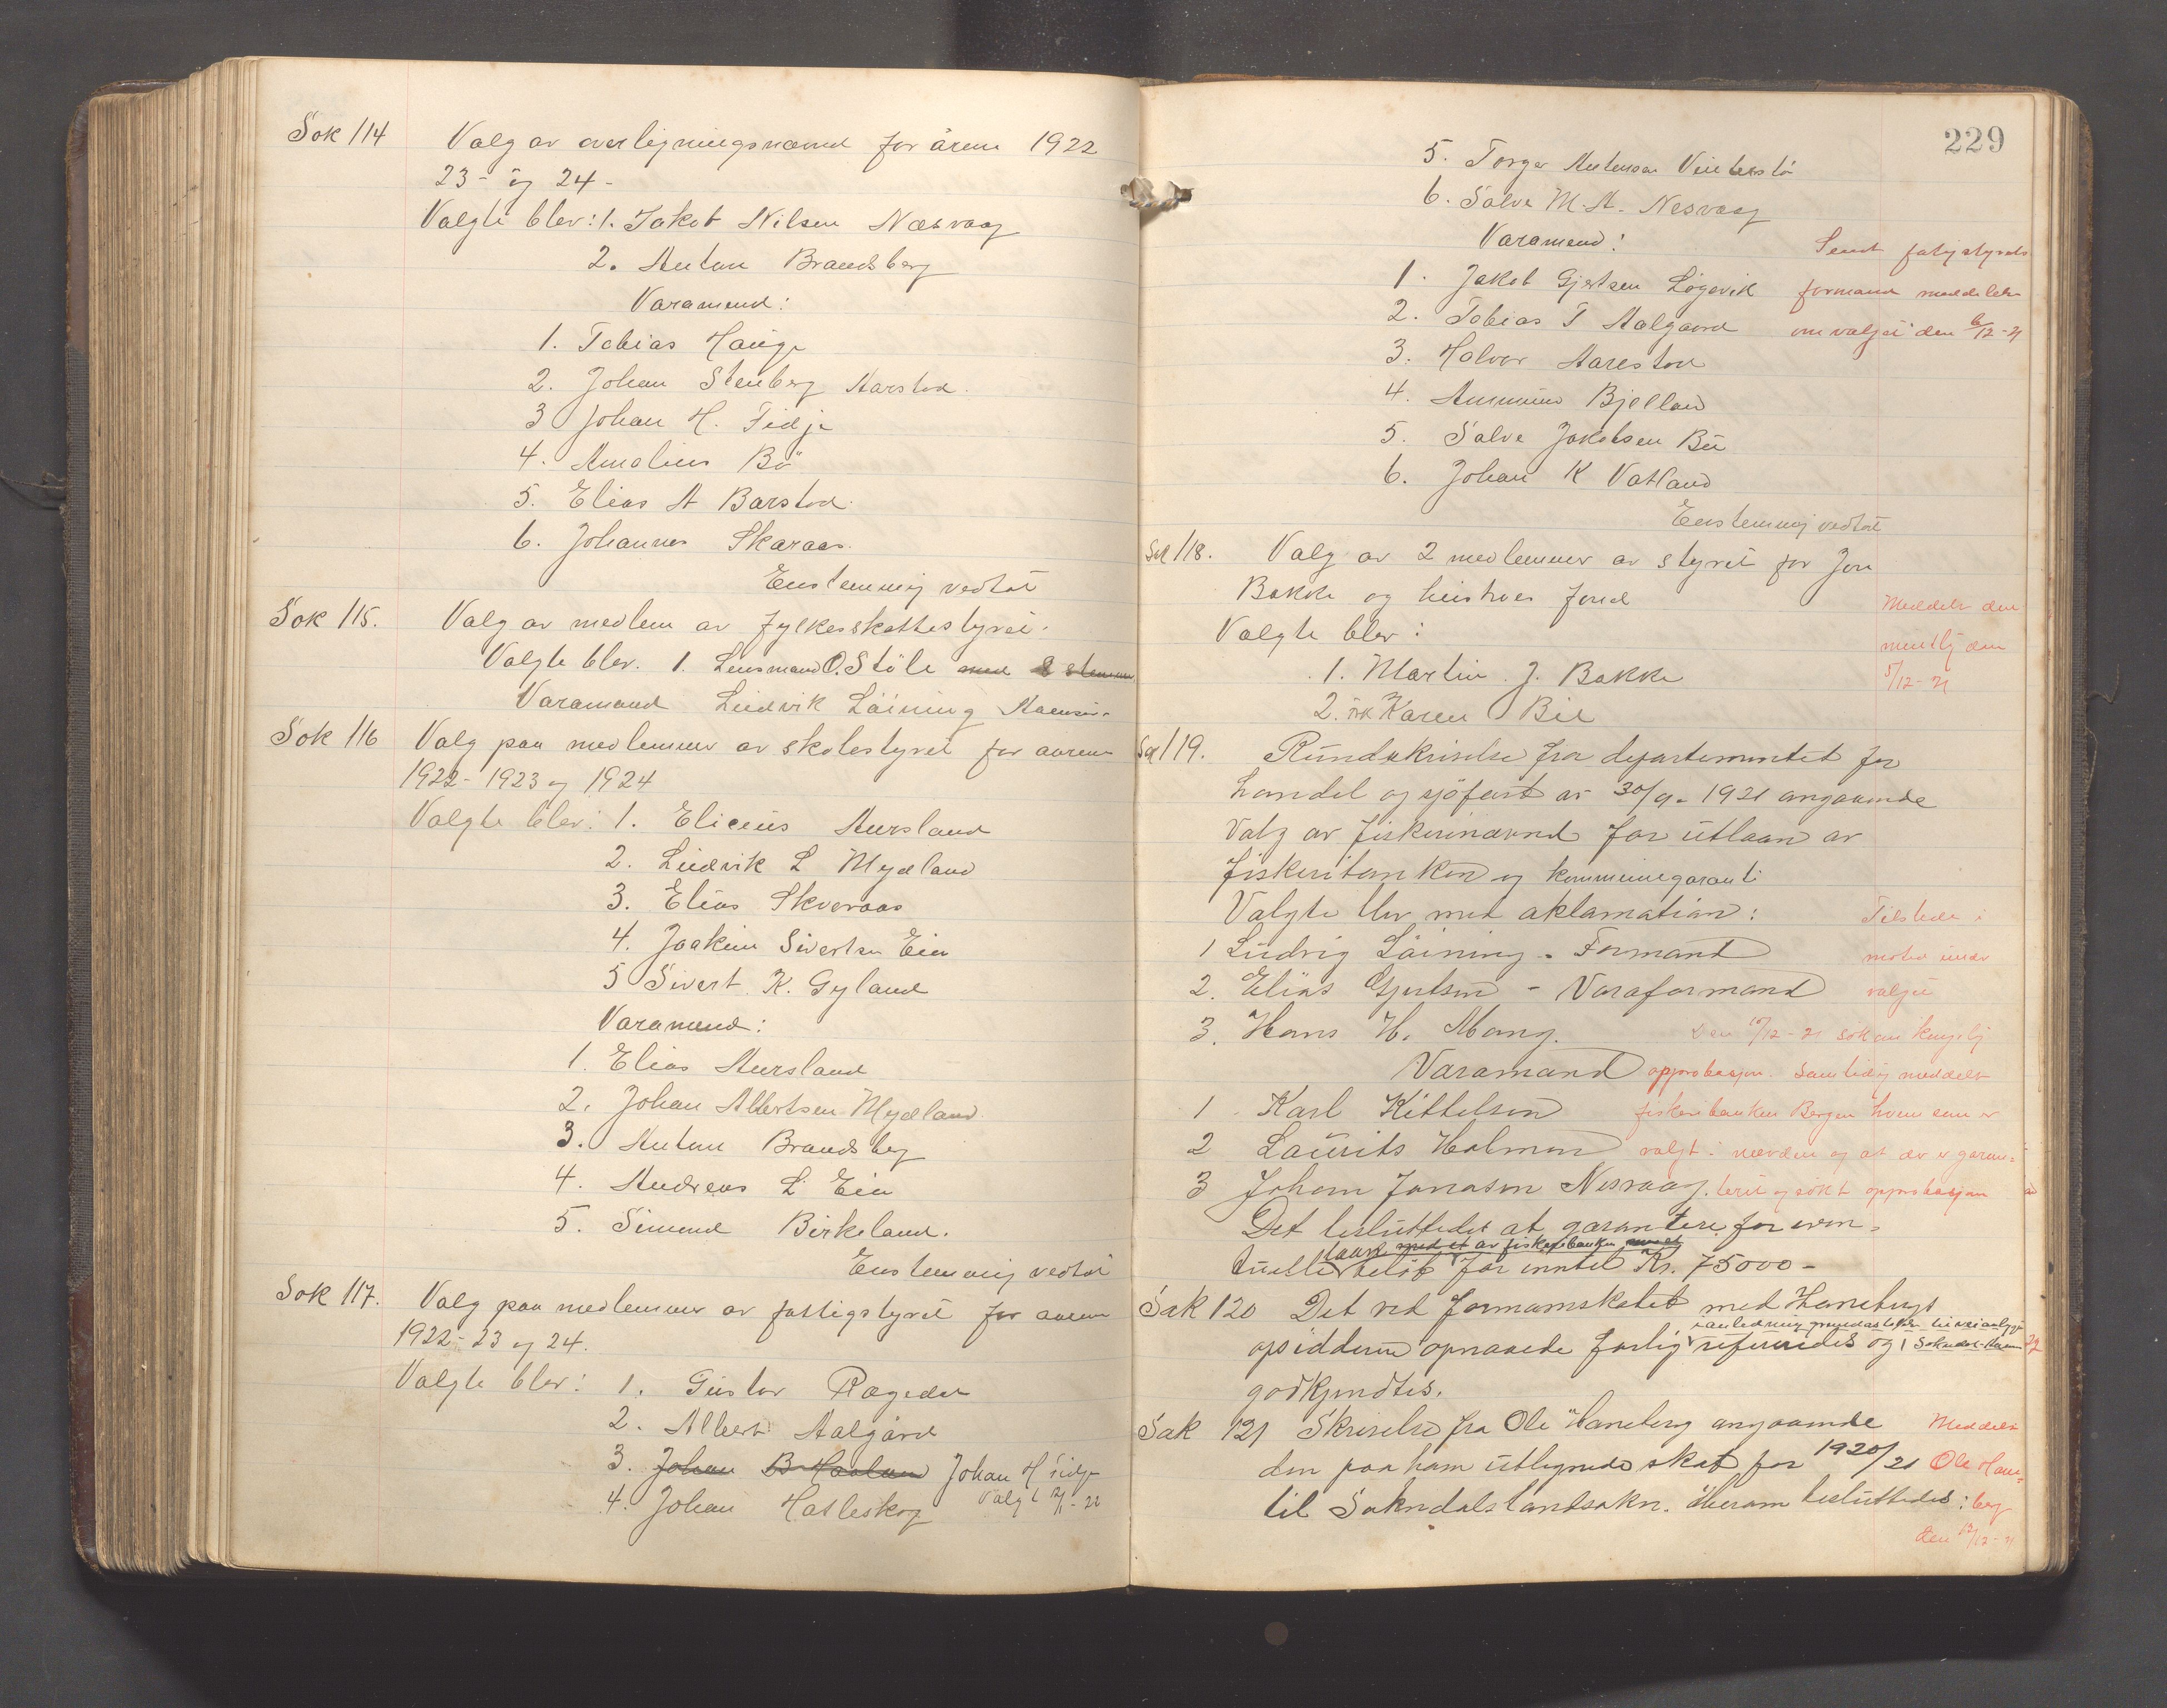 Sak 114 Valg av overligningsnævnd for årene 1922
23- og 24-
Valgte blev: 1. Jakob Nilsen Næsvaag
2. Anton Brandsberg
Varamend:
1. Tobias Hauge
2. Johan Stenberg Aarstad.
3 Johan H. Fidje
4. Amalius Bö
5. Elias A Barstad.
6. Johannes Skaraas.
Enstemmig vedtat
Sak 115. Valg av medlem av fylkesskattestyret.
Valgte blev. 1. Lensmand O. Stöle med 8 stemmer
Varamand Ludvik Löining
Sak 116 Valg paa medlemmer av skolestyret for aarene
1922- 1923 og 1924
Valgte blev: 1. Elieeus Aursland
2. Ludvik L Mydland
3. Elias Skveraas
4. Joakim Sivertsen Eia
5 Sivert K. Gyland
Varamend:
1. Elias Aursland
2. Johan Albertsen Mydland.
3. Anton Brandsberg
4. Andreas L Eia
5. Simond Birkeland.
Enstemmig vedtat
Sak 117. Valg paa medlemmer av fattigstyret for aarene
1922- 23 og 24.
Valgte blev: 1. Gustav Rægedal
2. Albert Aalgård
3. Johan B Haaland Johan H Fidje
4. Johan Hatleskog Valgt 2/1-22
229
5. Torger Antonsen Vinterstö
6. Salve M. A. Nesvaag
Varamend:
Sendt fatigstyrets
1. Jakob Gjertsen Løgevik formand meddelelse
2. Tobias T Aalgaard om valget den 6/12-21
3. Halvor Aarestad
4. Ammund Bjelland
5. Salve Jakobsen Bu
6. Johan K Vatland
Enstemmig vedtat
Sak 118. Valg av 2 medlemmer av styret for Jon
Bakke og hustrues fond
Meddelt den
Valgte blev:
mundtlig den
1. Martin J. Bakke
5/12-21
2. Karen Bie
Sak 119. Rundskrivelse fra departementet for
handel og sjöfart av 30/9-1921 angaaende
Valg av fiskerinævnd for utlaan av
fiskeribanken og kommunegaranti
Valgte blev med aklamation: Tilstede i
1 Ludvig Löining - Formand møtet under
2. Elias Gjertsen - Varaformand valget
3. Hans H. Mong. Den 10/12-21 søkt om kongelig
Varamand approbasjon. Samtidig meddelt
1. Karl Kittelsen fiskeribanken Bergen hvem som er
2 Laurits Holmen valgt i nævnden og at der er garan=
3 Johan Jonassen Nesvaag. teret og søkt approbasjon
Det besluttedes at garantere for even=
laan med et av fiskeribanken
tuelle beløb for inntil Kr. 75000-
Sak 120 Det ved formannskabet med Haneberg
opsidderne opnaaede forlig refereredes og
godkjendtes.
Sak 121 Skrivelse fra Ole Haneberg angaaende Meddelt
den paa ham utlignede skat for 1920/21 Ole Hane=
til Sokndals landsokn. Herom besluttedes: berg
den 12/12-21